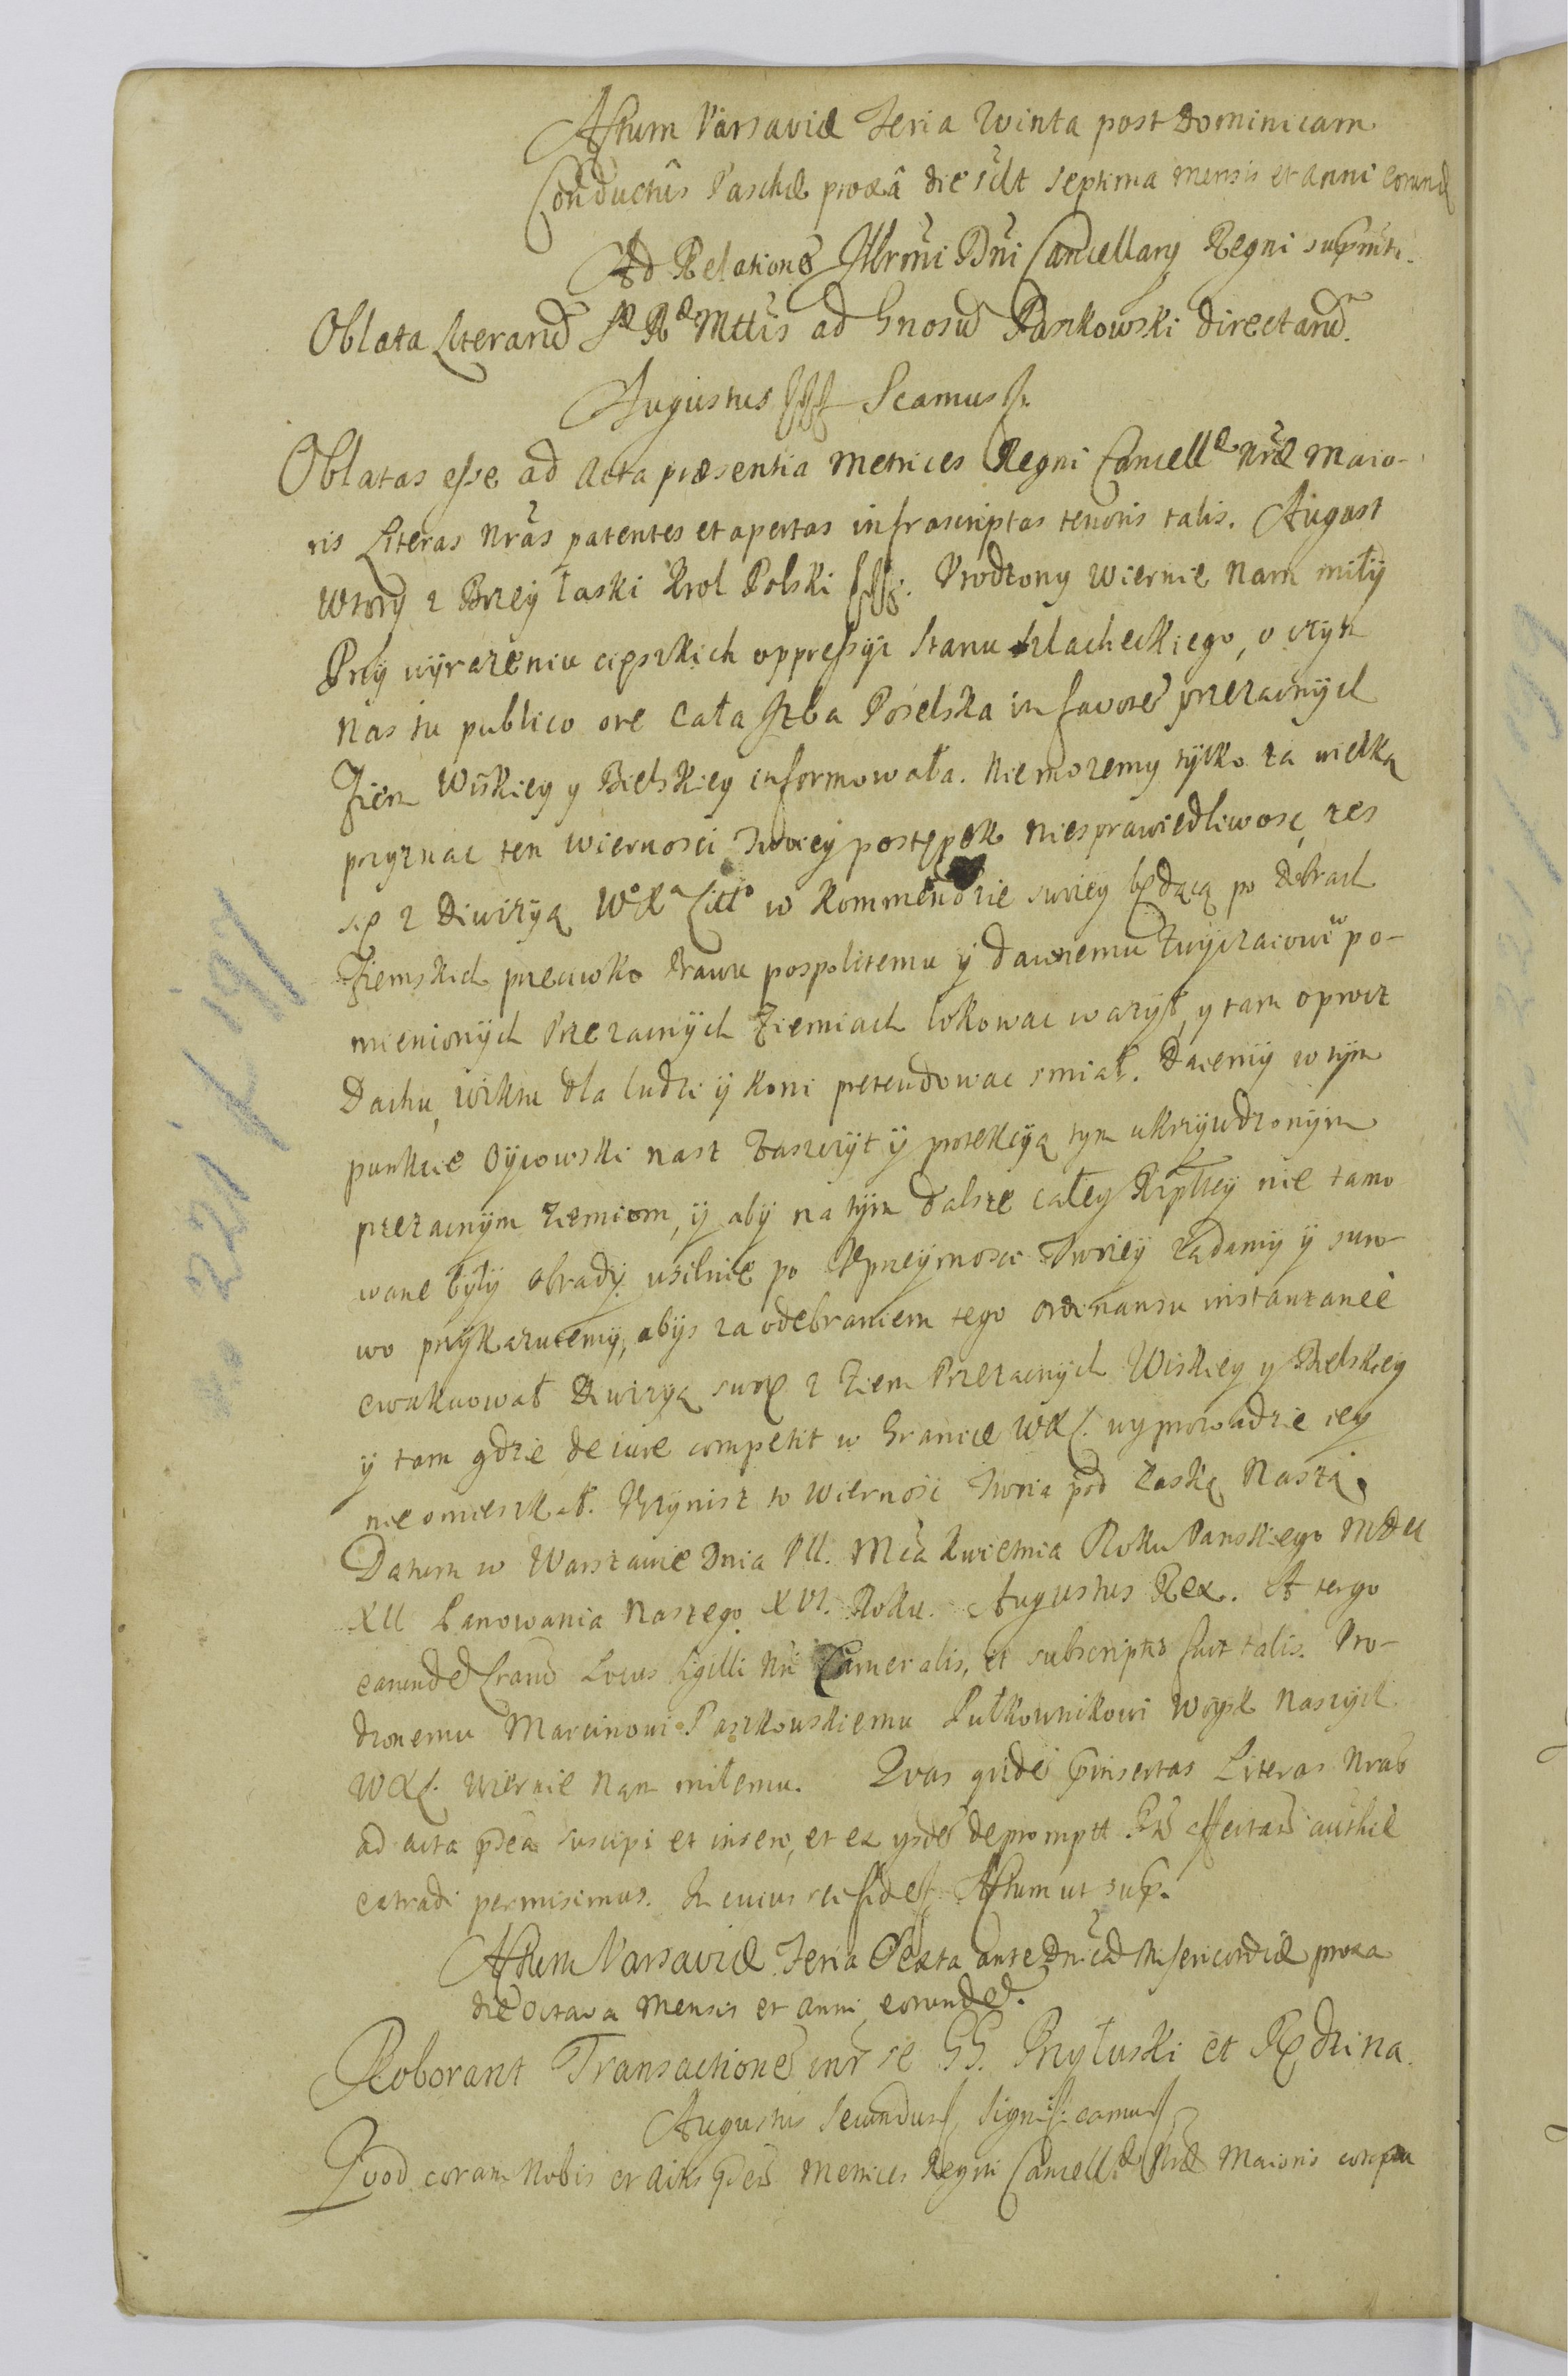 Actum Varsaviæ Feria Qvinta post Dominicam
Conductûs Paschæ proxâ die sclt septima mensis et anni eorund
Ad Relatione Illrmi Dni Cancellarij Regni supmti.
Oblata Literarud Sæ Ræ Mttis ad Gnosud Paszkowski directarud.
Augustus Scamus
Oblatas esse ad Acta præsentia Metrices Regni Cancellæ Nræ Maio-
ris Literas Nras patentes et apertas infrascriptas tenoris talis. August
Wtory z Bozey Łaski Krol Polski Urodzony Wiernie Nam miły
Przy wyrazeniu cięszkich oppressyi Stanu szlacheckiego, o czym
Nas tu publico ore cała Jzba Poselska in favore przezacnych
Ziem Wiskiey y Bielskiey informowała. Nie mozemy tylko za wielką
przyznac ten Wiernosci Twoiey postępek niesprawiedliwosc, zes
się z Diwizyą WoXa Litto w Kommendzie swoiey będącą po Dobrach
Ziemskich przeciwko Prawu pospolitemu y dawnemu Zwyczaiowi w po-
mienionych Przezacnych Ziemiach lokowac wazył, y tam oprocz
Dachu, wiktu dla ludzi y koni pretendowac smiał. Daiemy w tym
punkcie Oycowski nasz Zaszczyt y protekcyą tym ukrzywdzonym
przezacnym Ziemiom, y aby na tym dalsze całey Rzpltey nie tamo
wane były obrady, usilnie po Uprzeymosci Twoiey ządamy y suro-
wo przykazuiemy, abys za odebraniem tego ordinansu instantaneè
ewakuował Diwizyą swoię z Ziem Przezacnych Wiskiey y Bielskiey
y tam gdzie de iure competit w Granice WXL. wyprowadzic iey
nieomieszkał. Uczynisz to Wiernosc Twoia pod Łaską Naszą.
Datum w Warszawie Dnia VII. Mca Kwietnia Roku Panskiego MDCC
XII Panowania Naszego XVI. Roku. Augustus Rex. A tergo
earunded Lrarud Locus Sigilli Nri Cameralis, et subscriptio fuit talis. Uro-
dzonemu Marcinowi Paszkowskiemu Pułkownikowi Woysk Naszych
WXL. Wiernie Nam miłemu. Qvas qvide pinsertas Literas Nras
ad acta pdca suscipi et inseri, et ex ysde depromptt
extradi permisimus. In cuius rei fide Actum ut sup.
Actum Varsaviæ Feria Sexta ante Dnicad Misericordiæ proxa
die Octava Mensis et anni eorunded.
Roborant Transactione intr se GG. Przyłuski et Rędzina.
Augustus Secundus Significamus
Qvod coram Nobis et Actis pdtis Metrices Regni Cancellæ Nræ Maioris compa